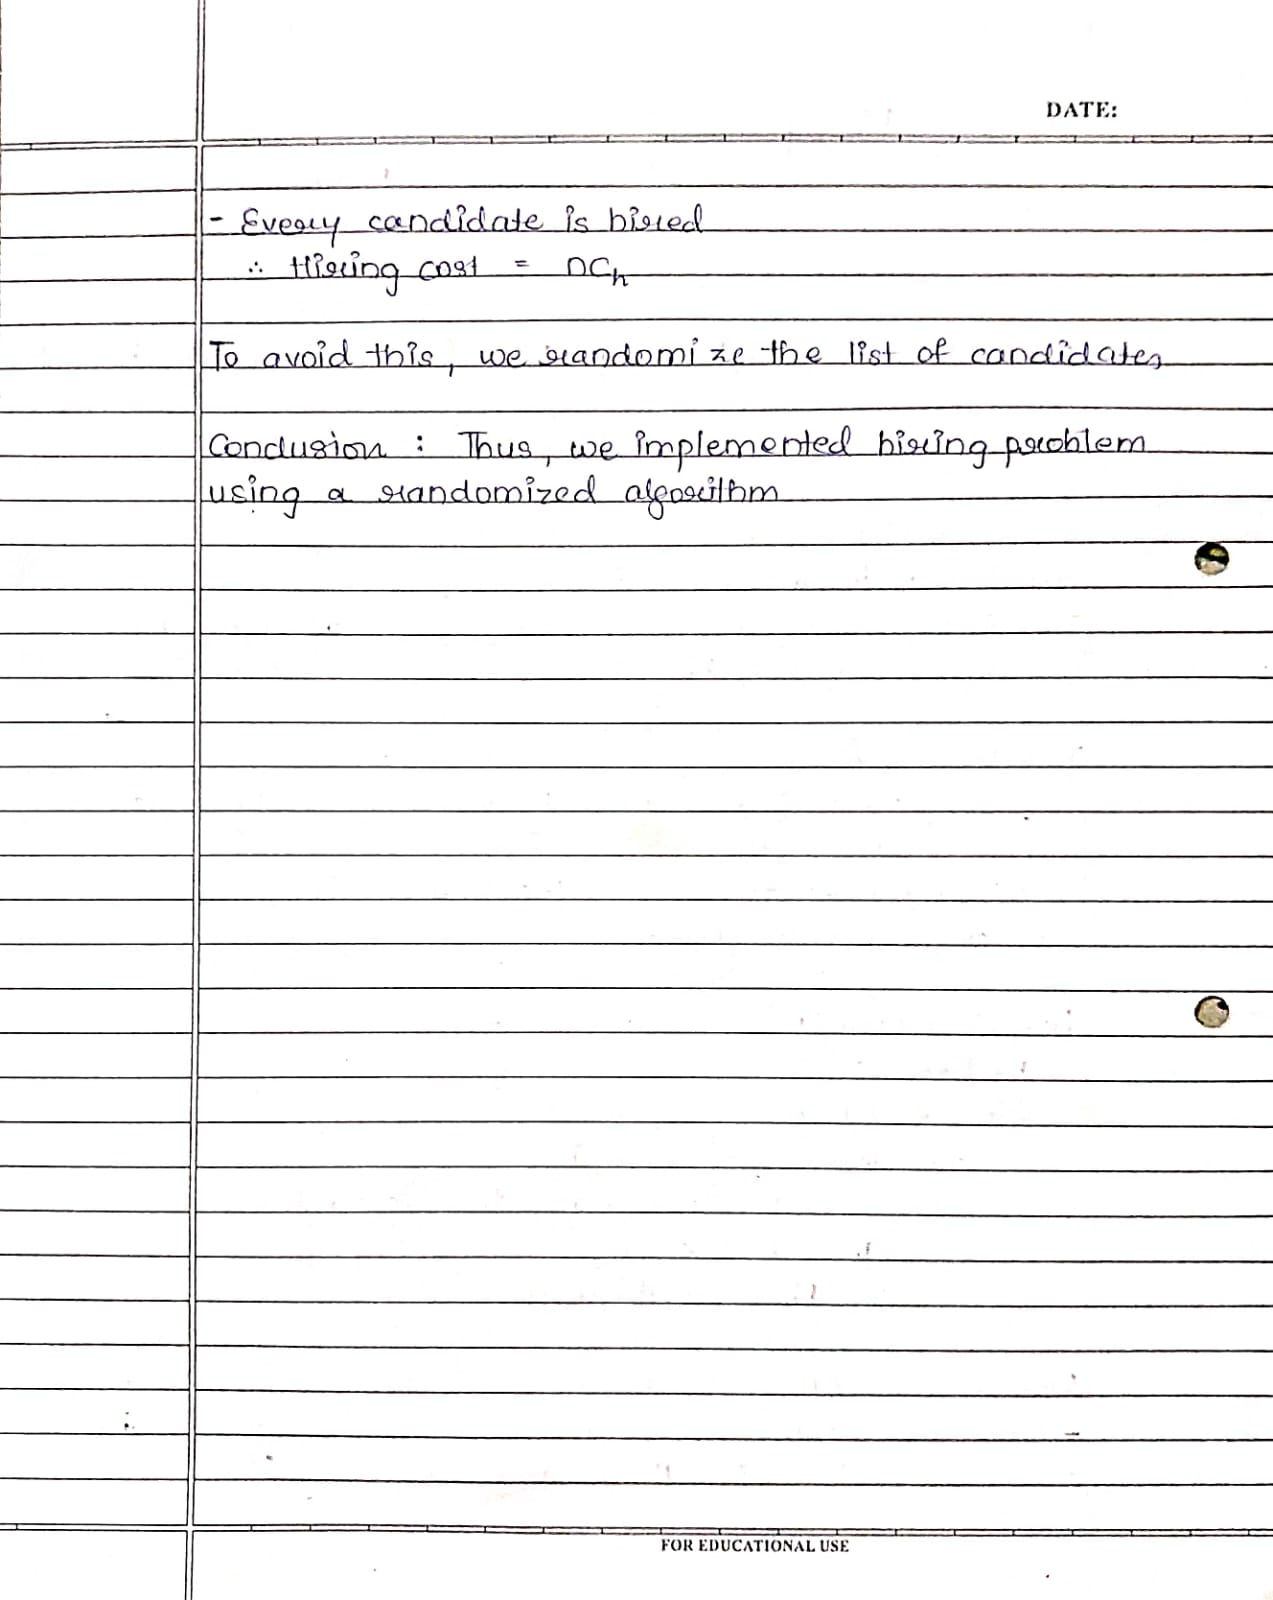 DATE:
- Every candidate is hired
∴ Hiring cost = nCh
To avoid this, we randomize the list of candidates
Conclusion : Thus, we implemented hiring problem
using a randomized algorithm
FOR EDUCATIONAL USE